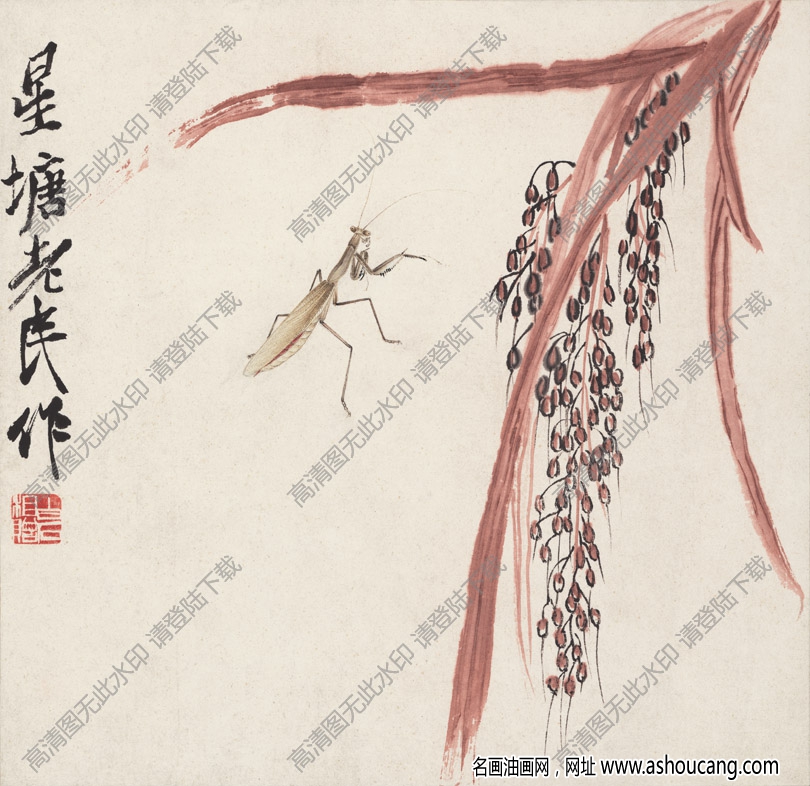 星塘老民作
高清图无此水印 请登陆下载
高清图无此水印 请登陆下载
高清图无此水印 请登陆下载
高清图无此水印 请登陆下载
高清图无此水印 请登陆下载
高清图无此水印 请登陆下载
高清图无此水印 请登陆下载
高清图无此水印 请登陆下载
高清图无此水印 请登陆下载
名画油画网，网址 www.ashoucang.com